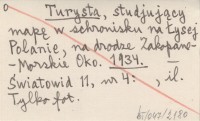 o
Turysta, studjujący
mapę w schronisku na Łysej
Polanie, na drodze Zakopane-
-Morskie Oko. 1934.
Światowid 11, nr 4: , il.
Tylko fot.